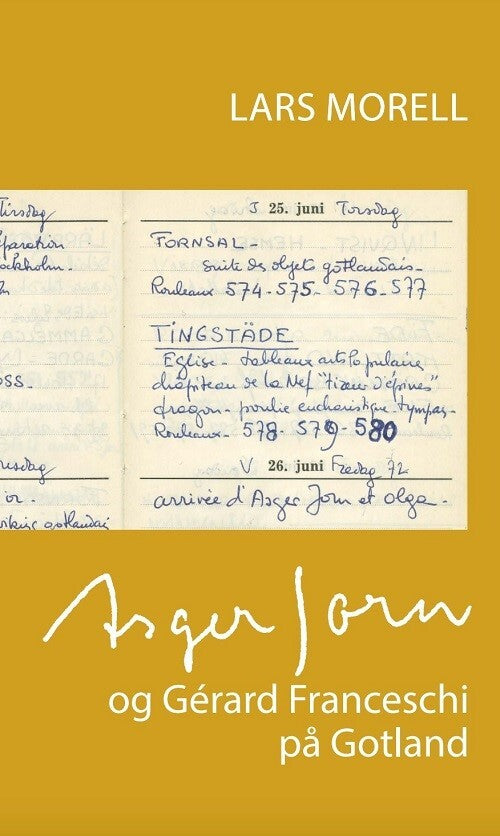 LARS MORELL
Tirsdag
éparation
ockholm.
OSS.
J 25. juni Torsdag
FORNSAL -
suite des objets gotlandais -
Rouleaux 574-575-576-577
TINGSTÄDE
Eglise - tableaux arts populaire
chapiteau de la Nef "
dragon - poulie eucharistique - tympan -
Rouleaux - 578 579-580
V 26. juni Fredag 72
arrivée d'Asger Jorn et olga -
viking gotlandais
Asger Jorn
og Gérard Franceschi
på Gotland